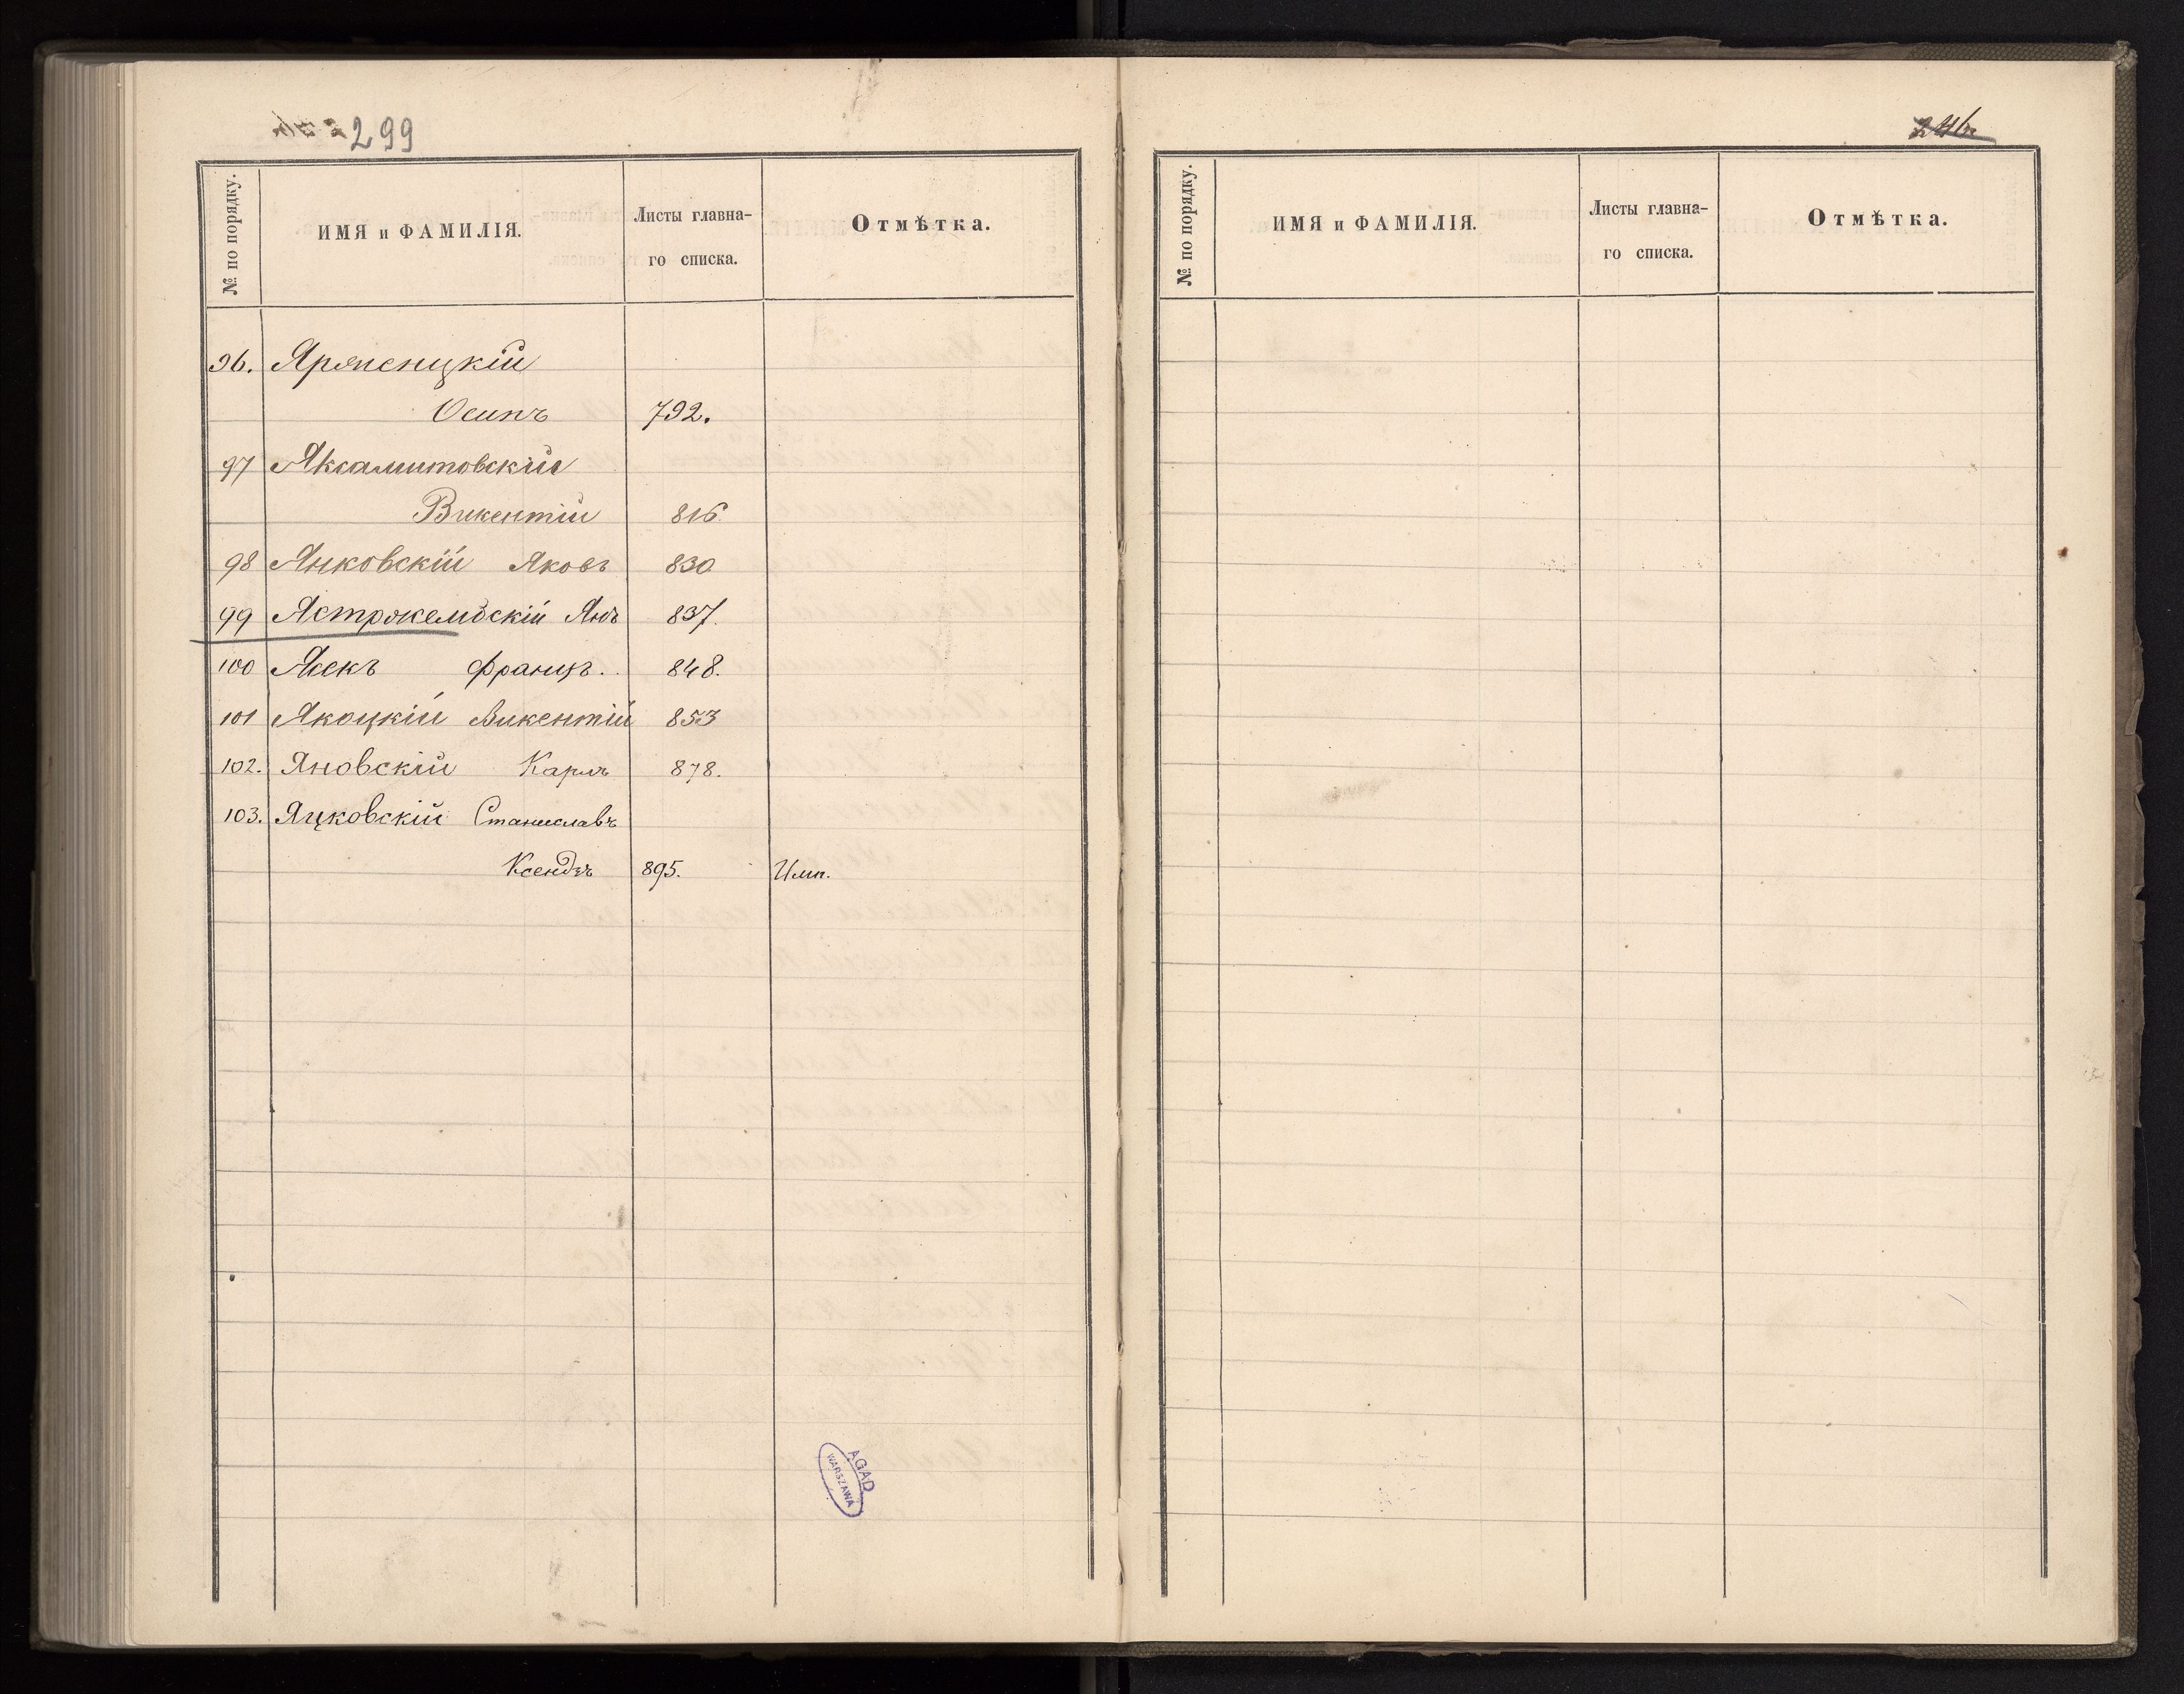 299
№ по порядку.
ИМЯ и ФАМИЛІЯ.
Листы главна-
го списка.
Отмѣтка.
96.
Осипъ 792.
97 Яксамитовскій
Викентій 816
98 Янковскій Яковъ 830
99 Янъ 837.
100 Ясекъ Францъ. 848.
101 Якоцкій Викентій 853
102. Яновскій Карлъ 878.
103. Яцковскій Станиславъ
Ксендзъ 895. Имп.
AGAD
WARSZAWA
№ по порядку.
ИМЯ и ФАМИЛІЯ.
Листы главна-
го списка.
Отмѣтка.